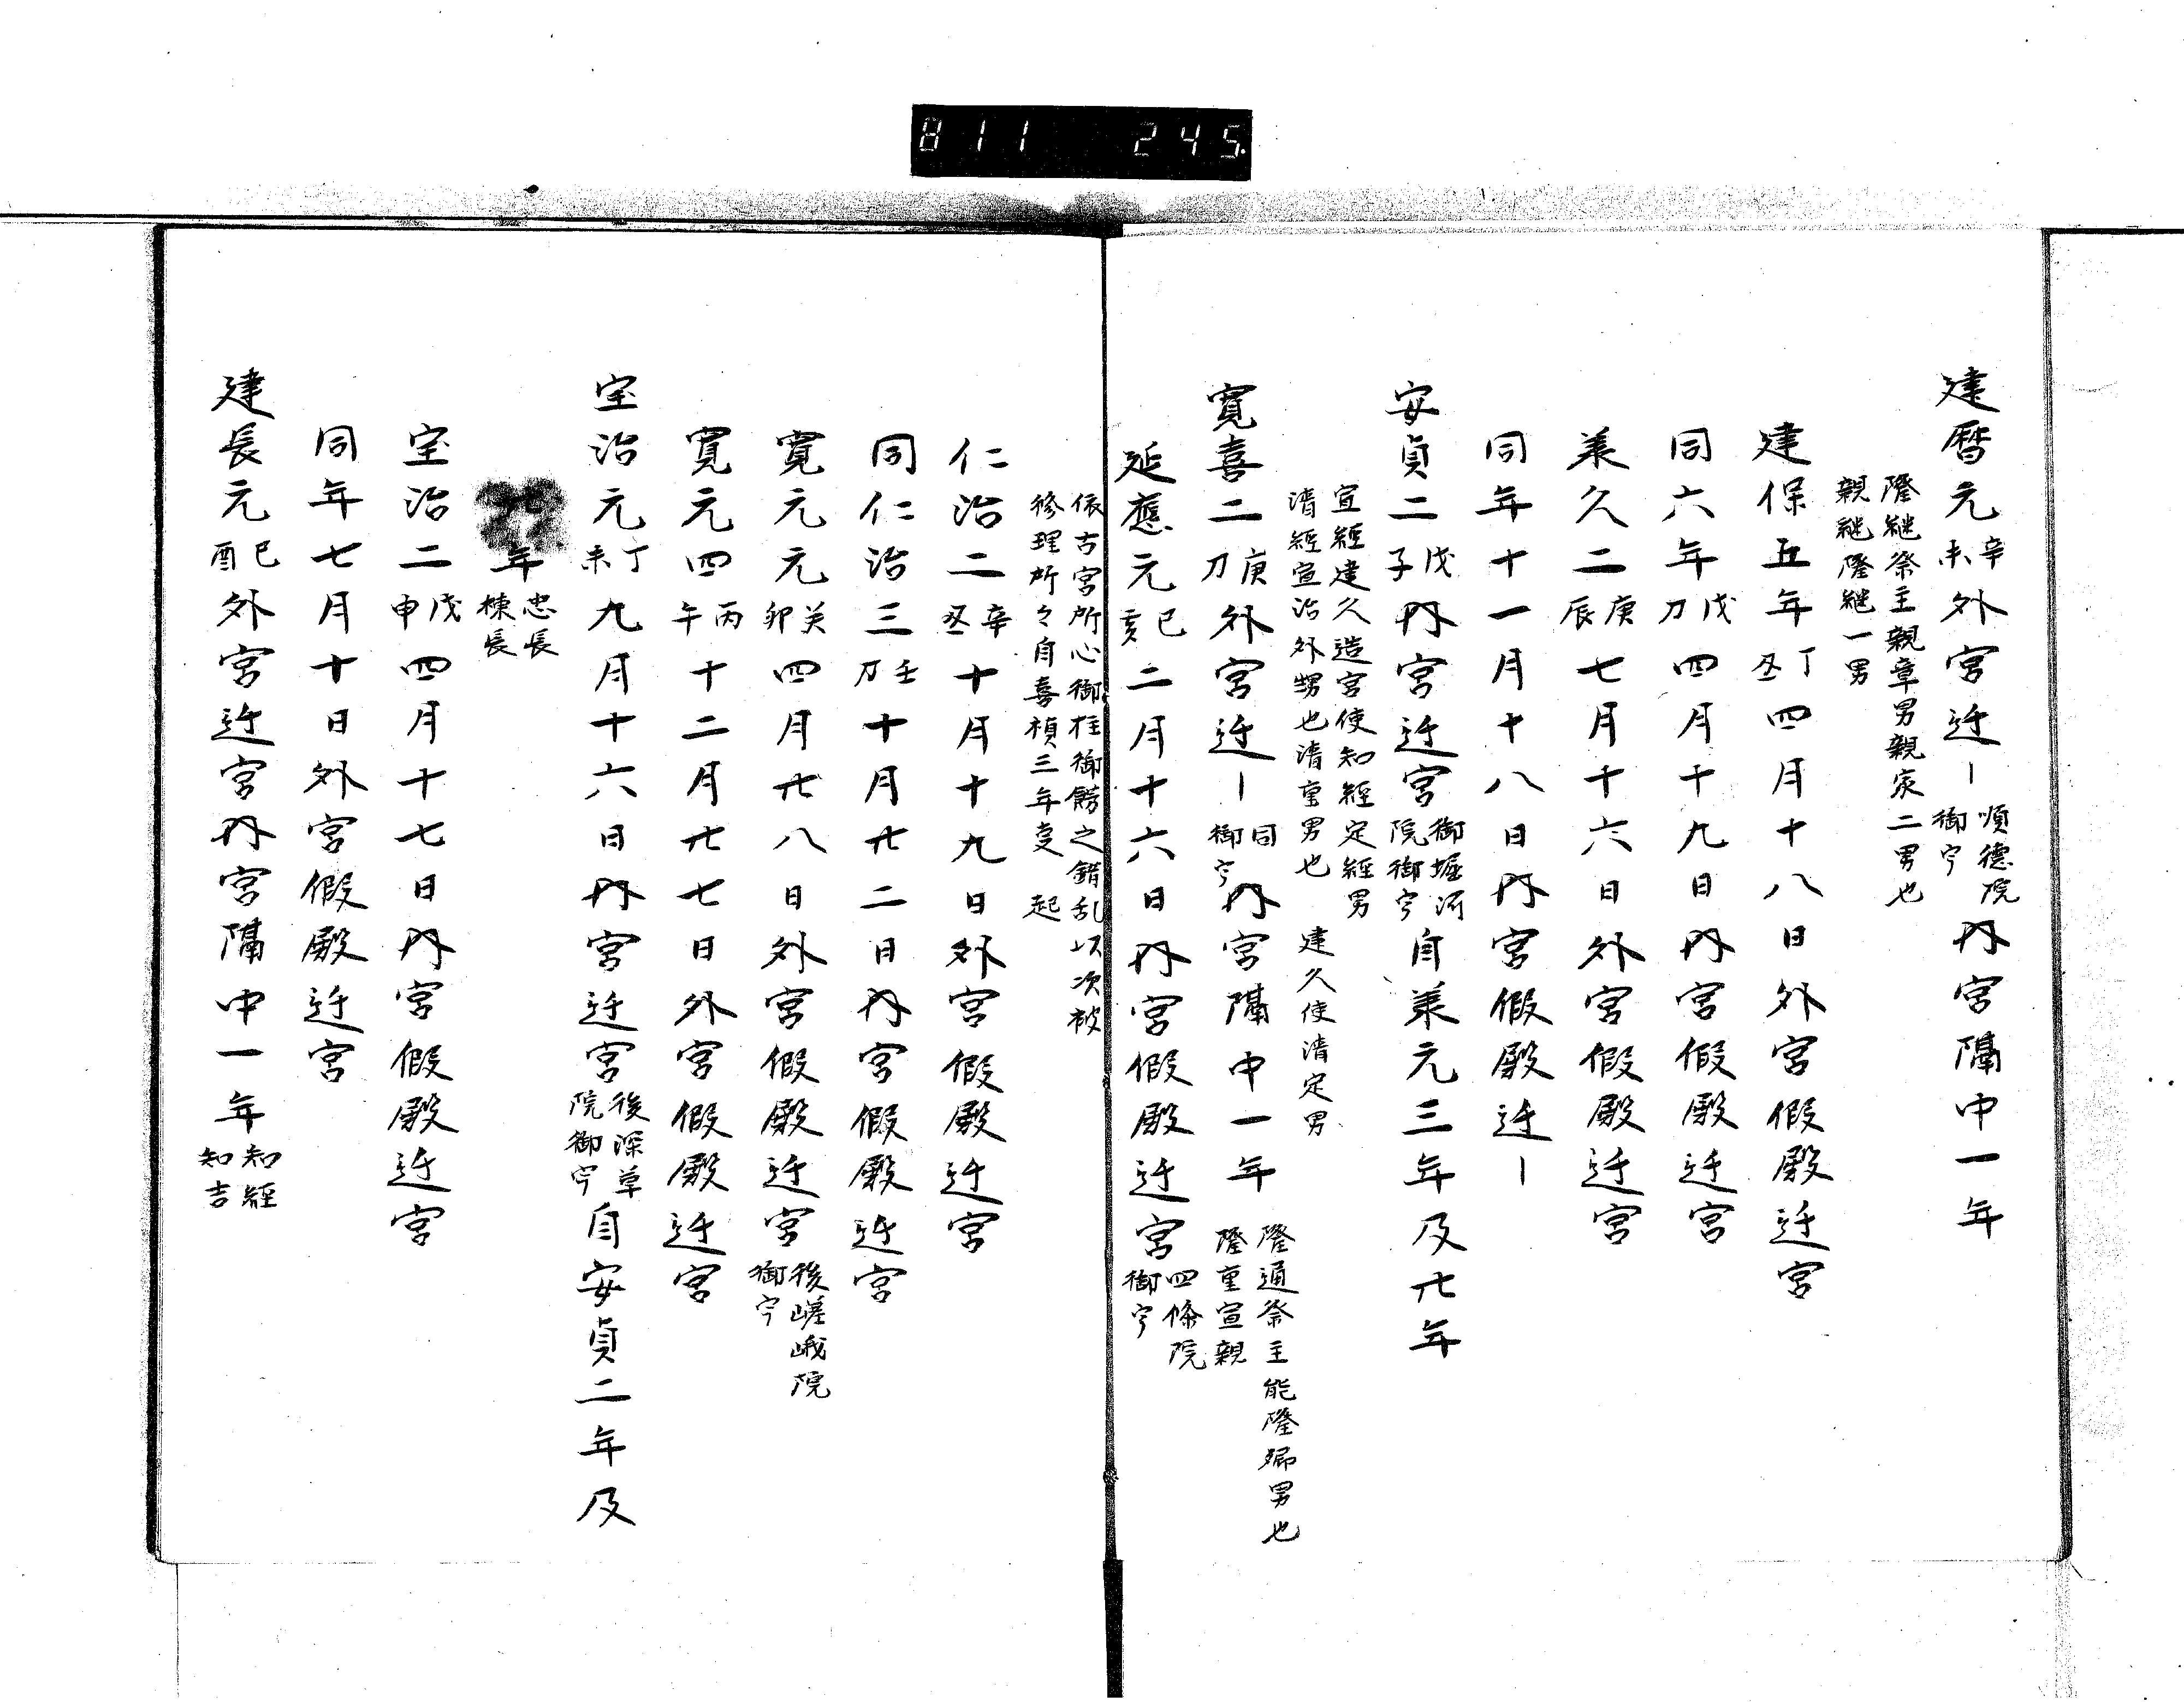 811 245
建暦元辛未外宮迁ー順徳院御宇内宮隔中一年
隆継祭主親章男親家二男也
親継隆継一男
建保五年丁丑四月十八日外宮假殿迁宮
同六年戊刁四月十九日内宮假殿迁宮
美久二庚辰七月十六日外宮假殿迁宮
同年十一月十八日内宮假殿迁ー
安貞二戊子内宮迁宮御堀河院御宇自美元三年及廿年
宣經建久造宮使知經定經男
清經宣治外甥也清重男也 建久使清定男
寛喜二庚刁外宮迁ー同御宇内宮隔中一年隆通祭主能隆孫男也
隆重宣親
延應元己亥二月十六日内宮假殿迁宮四條院御宇
依古宮所心御柱御餝之錯乱以次被
修理所々自喜禎三年事起
仁治二辛丑十月十九日外宮假殿迁宮
同仁治三壬刁十月廿二日内宮假殿迁宮
寛元元癸卯四月廿八日外宮假殿迁宮後嵯峨院御宇
寛元四丙午十二月廿七日外宮假殿迁宮
宝治元丁未九月十六日内宮迁宮後深草院御宇自安貞二年及
廿年忠長棟長
宝治二戊申四月十七日内宮假殿迁宮
同年七月十日外宮假殿迁宮
建長元己酉外宮迁宮内宮隔中一年知經知吉